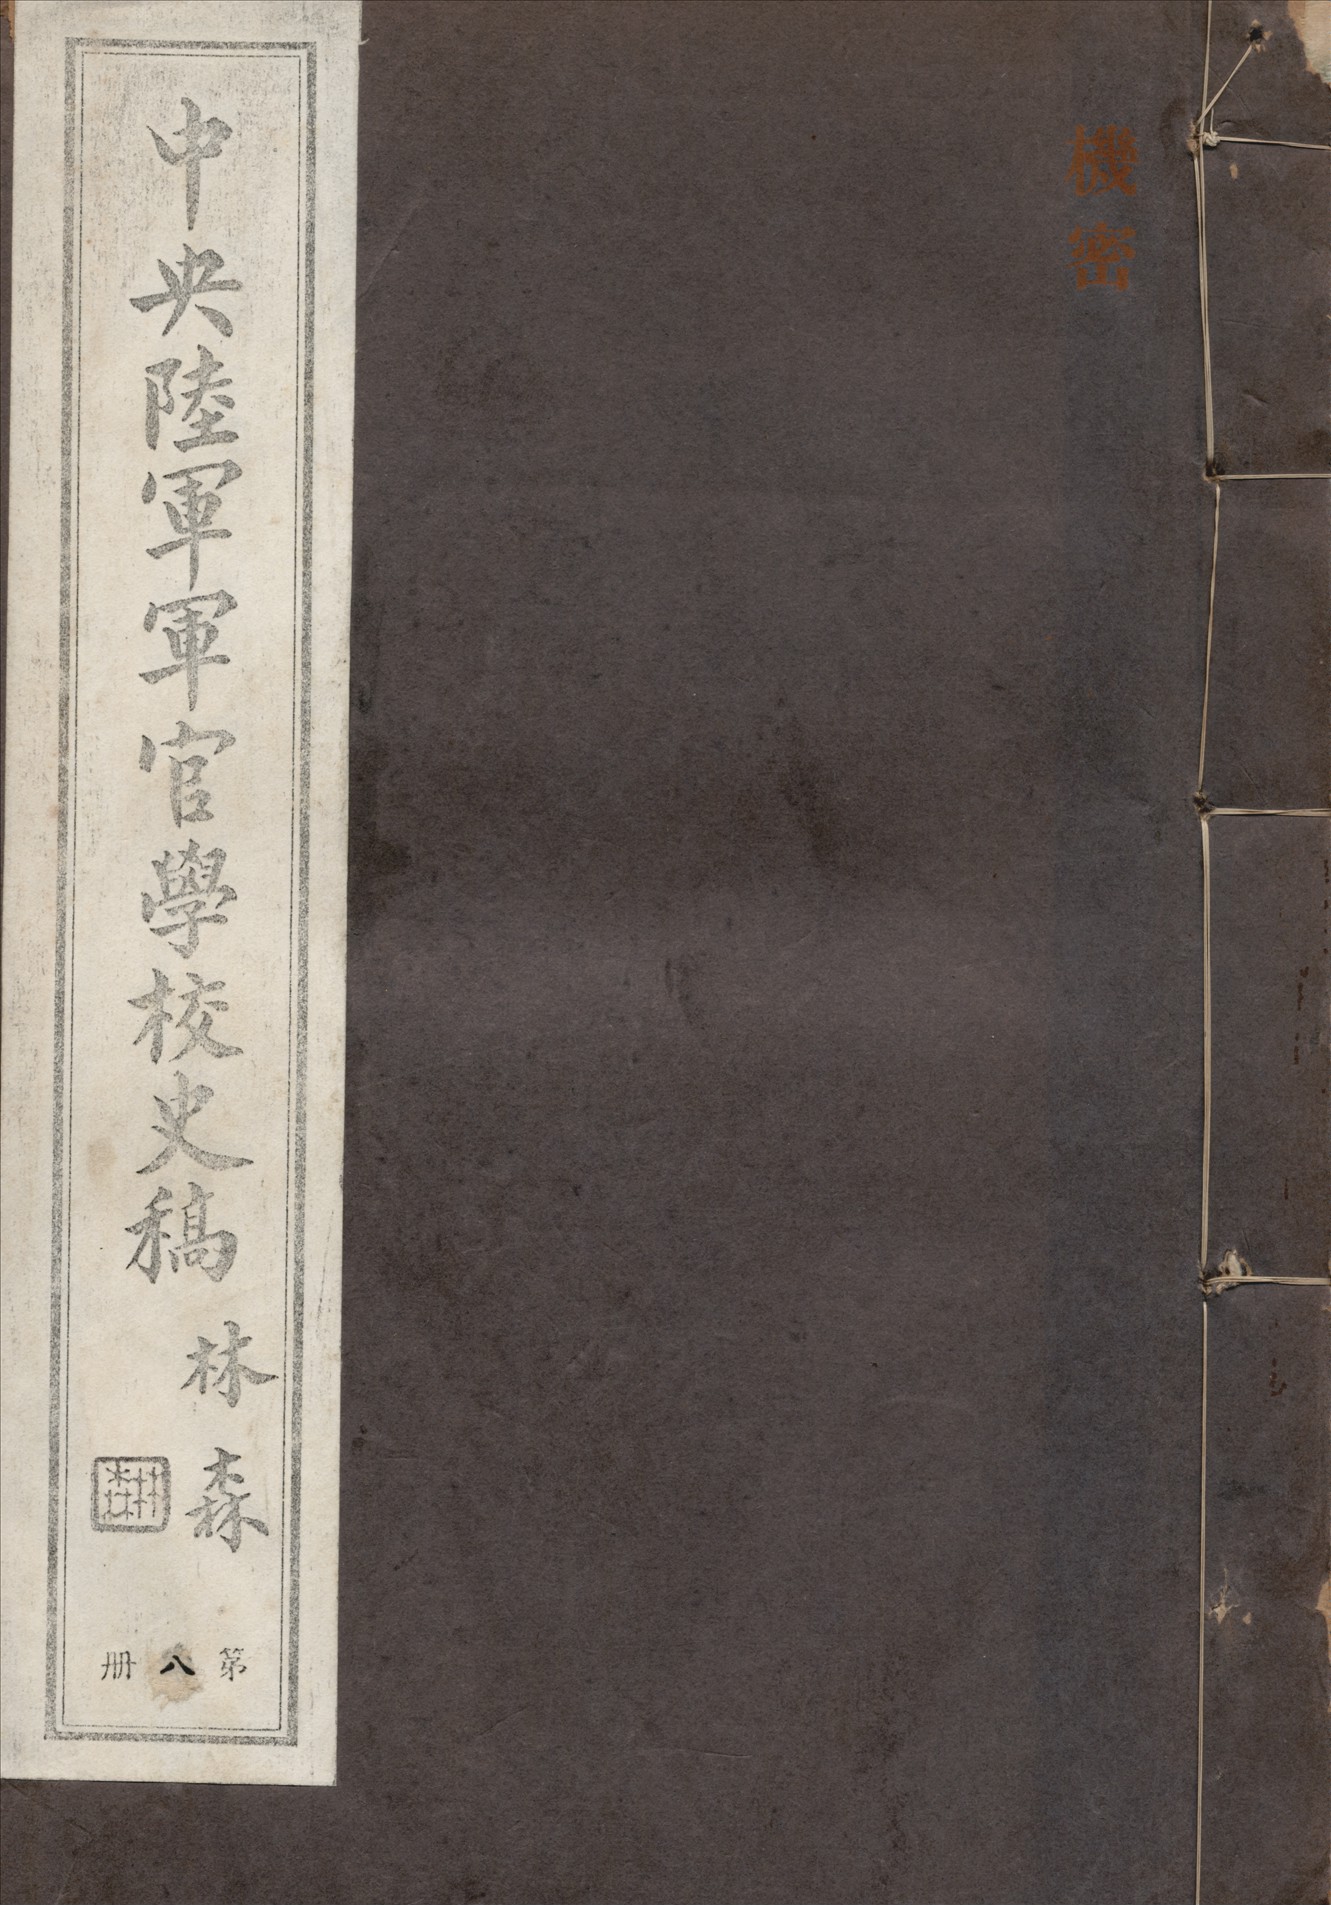 機密
中央陸軍軍官學校史稿
林森
第八冊